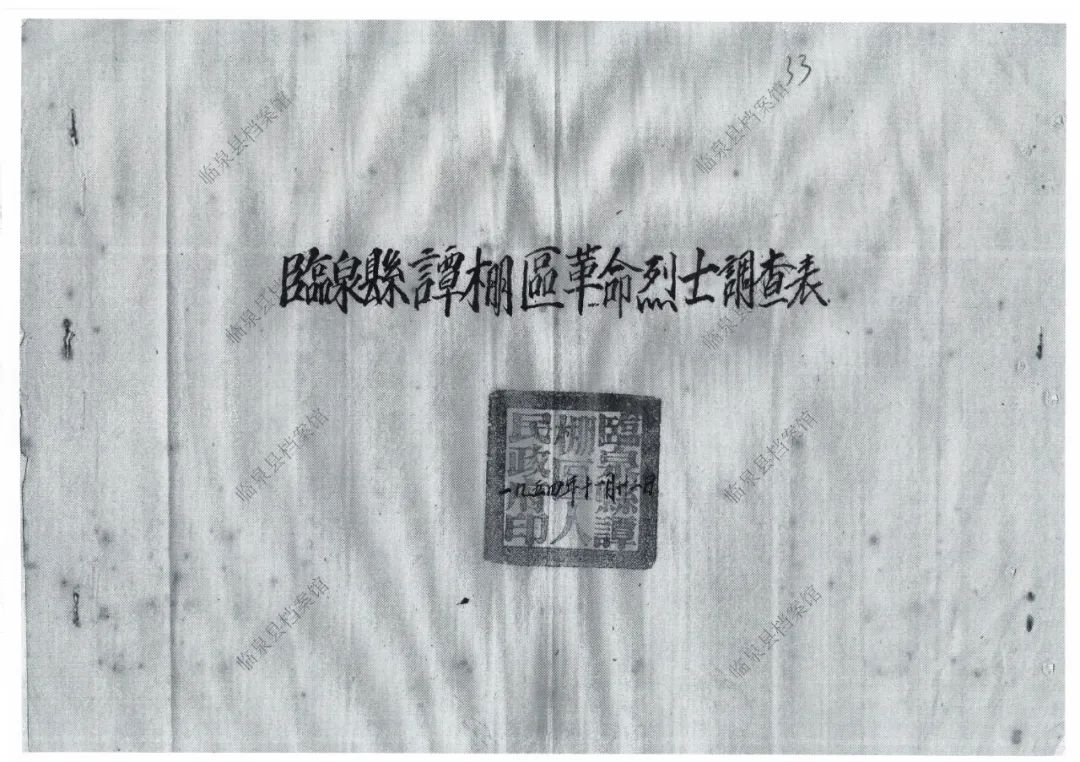 33
臨泉縣譚棚區革命烈士調查表
臨泉縣譚
棚區人
民政府印
一九五四年十一月廿一日
临泉县档案馆
临泉县档案馆
临泉县档案馆
临泉县档案馆
临泉县档案馆
临泉县档案馆
临泉县档案馆
临泉县档案馆